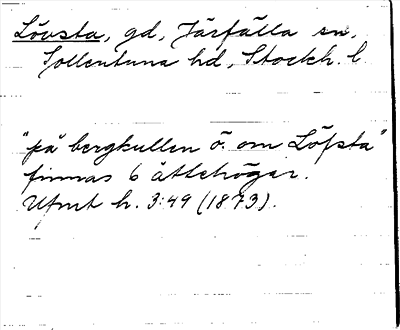 Lövsta, gd, Järfälla sn,
Sollentuna hd, Stockh. l.
"på bergkullen ö. om Löfsta"
finnas 6 ättehögar.
Ufmt h. 3:49 (1873).